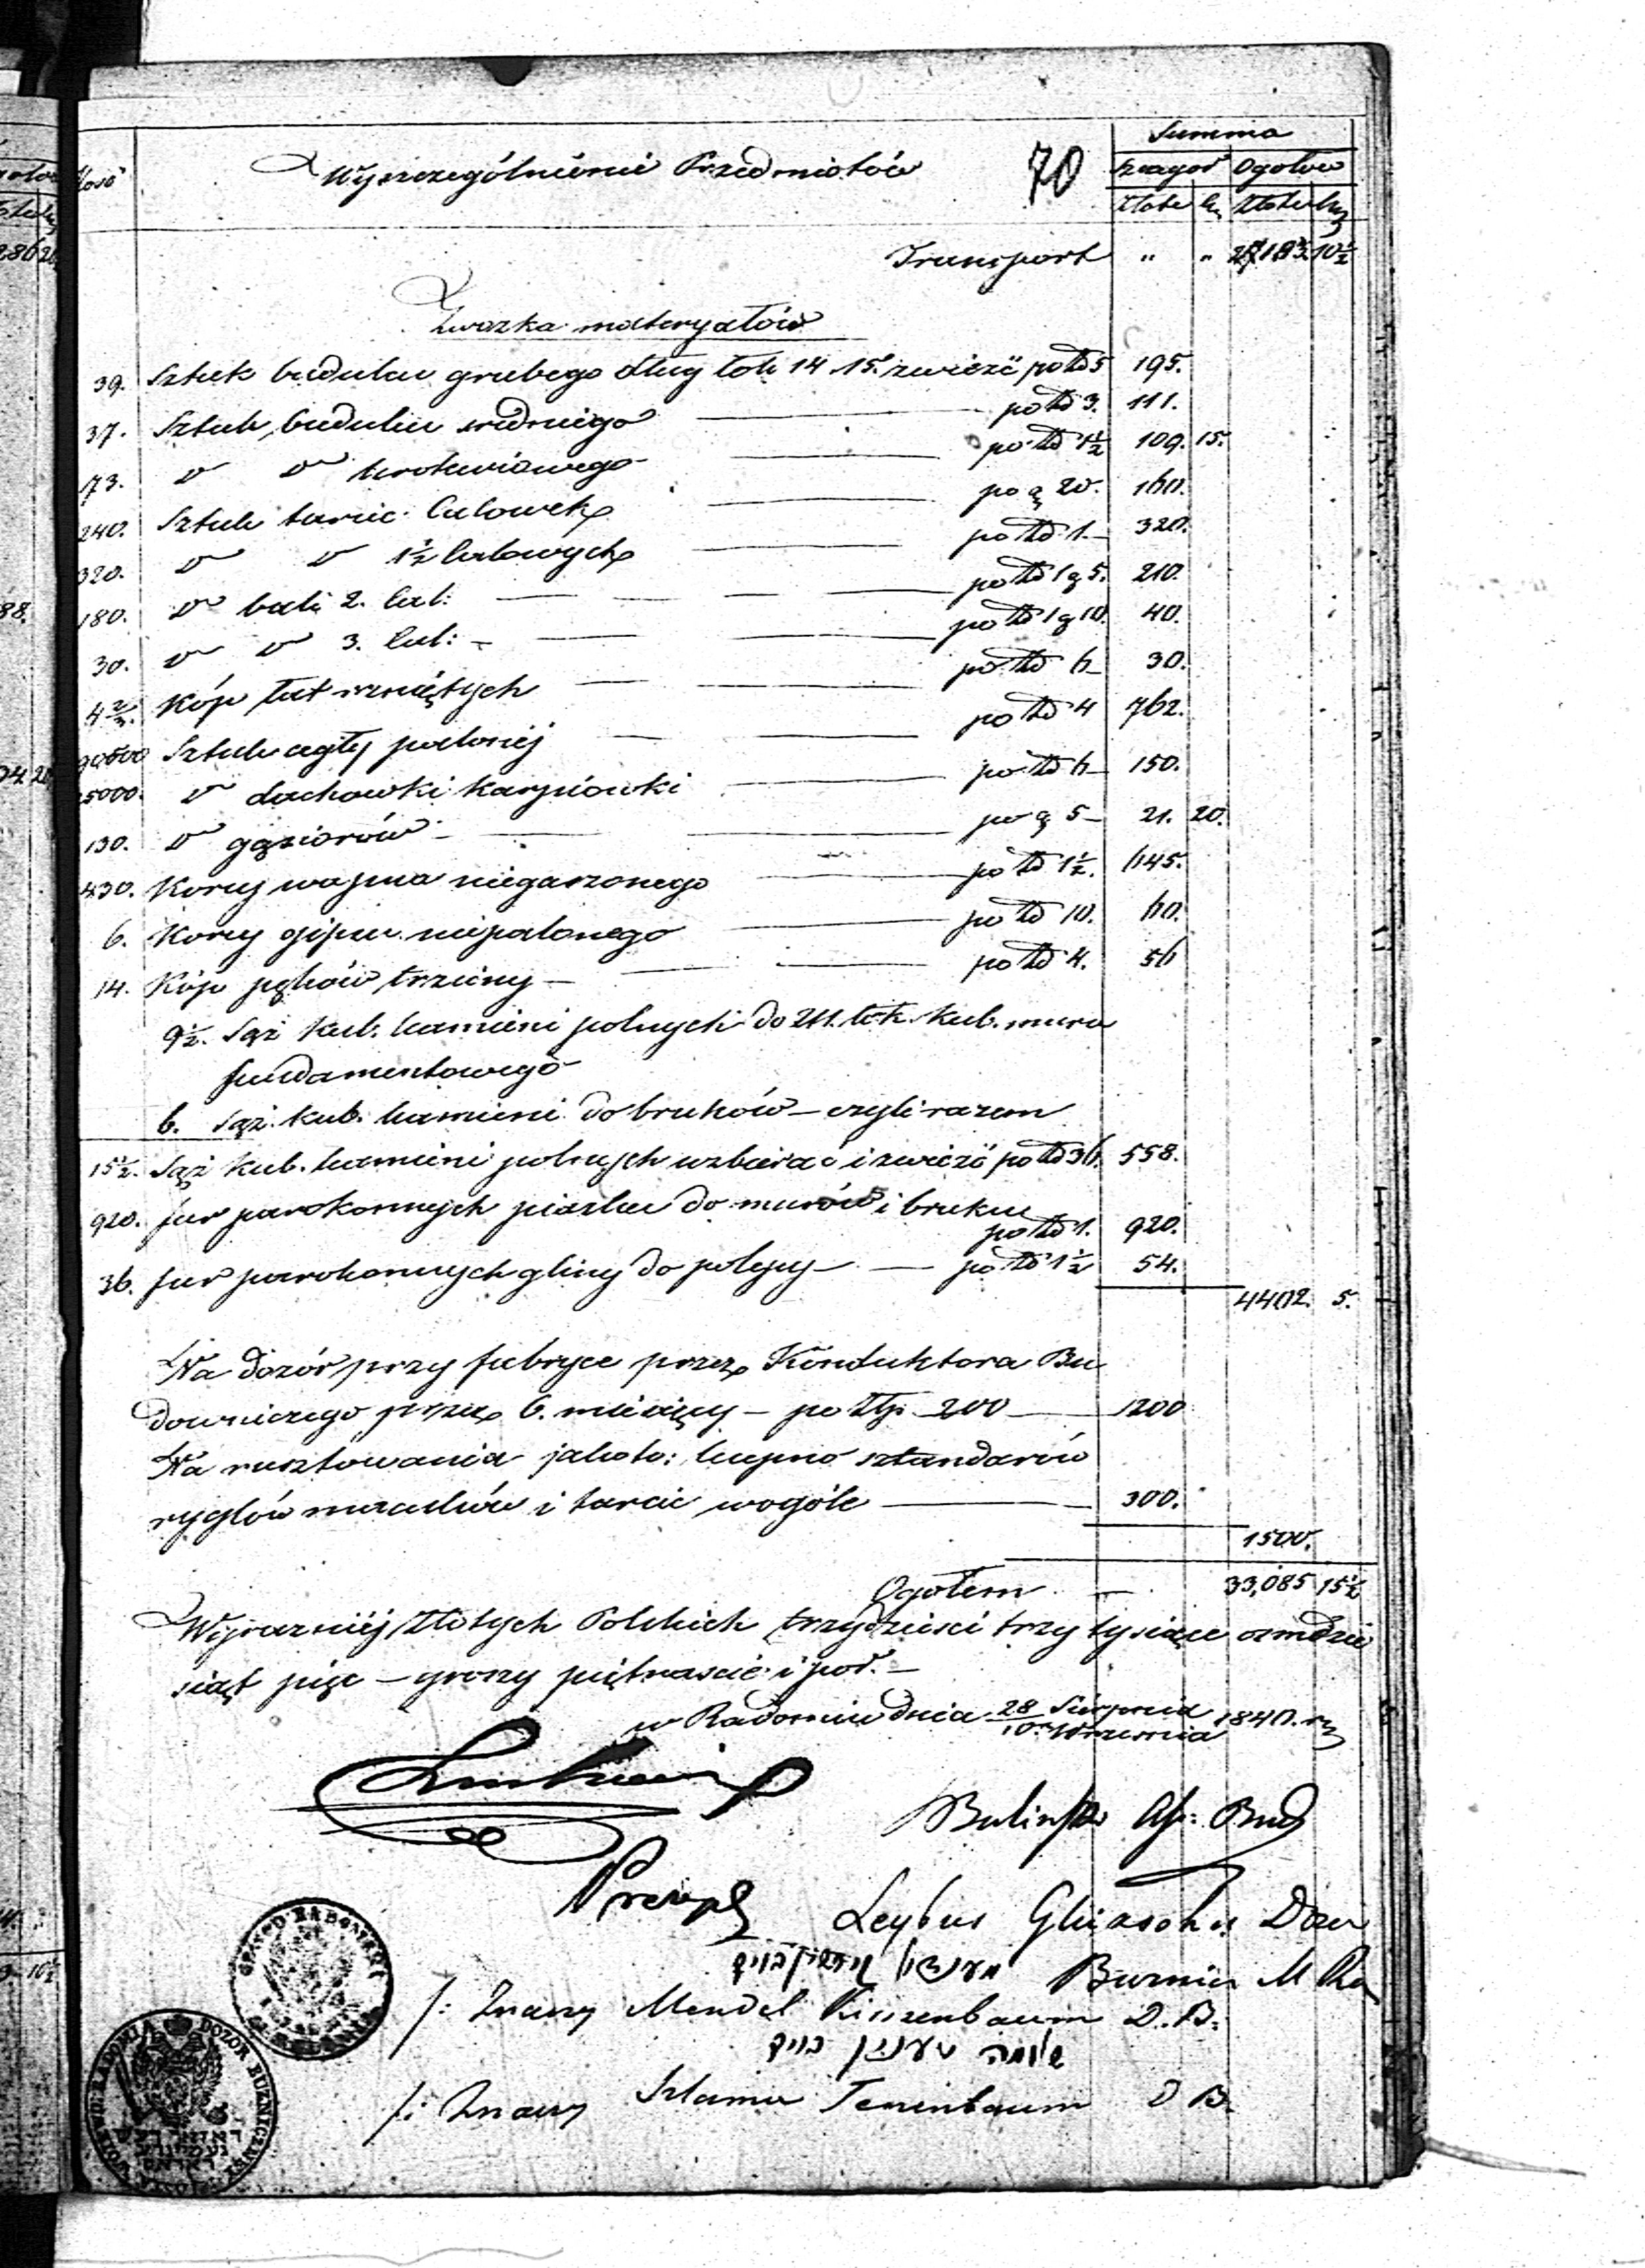 Summa
Ilość Wyszczególnienie Przedmiotów 70 Szczegół Ogółow
Złote gr Złote gr
Transport " " 10½
Zwózka materyałów
39. Sztuk budulcu grubego dług łok 14 15. zwieźć po złp 5 195.
37. Sztuk budulcu średniego po złp 3. 111.
73. " " krokwiowego po złp 1½ 109. 15.
240. Sztuk tarcic calowek po g 20. 160.
320. " " 1½ calowych po złp 1. 320.
180. " bali 2. cal: po złp 1 g 5. 210.
30. " " 3. cal: po złp 1 g 10. 40.
4 2/3. Kóp łat rzniętych po złp 6 30.
Sztuk cegły palonej po złp 4 762.
25000. " dachówki karpiówki po złp 6 150.
130. " gąsiorów po g 5 21. 20.
430. Korcy wapna niegaszonego po złp 1½. 645.
6. Korcy gipsu niepalonego po złp 10. 60.
14. Kóp pęków trzciny po złp 4. 56
9½. Sąż kub. kamieni polnych do 211. łok. kub. muru
fundamentowego
6. Sąż. kub. kamieni do bruków – czyli razem
15½. Sąż kub. kamieni polnych uzbierać i zwieźć po złp 36. 558.
920. fur parokonnych piasku do murów i bruku
po złp 1. 920.
36. fur parokonnych gliny do polepy po złp 1½ 54.
4402. 5.
Na dozór przy fabryce przez Konduktora Bu
downiczego przez 6. miesięcy – po Złp. 200 1200
Na rusztowania jakoto: kupno sztandarów
ryglów maculców i tarcic wogóle 300.
1500.
Ogółem 33,085 15½
Wyrazniej Złotych Polskich trzydzieści trzy tysiące osmdzie
siąt pięć – groszy piętnaście i poł.
w Radomiu dnia 28 Sierpnia / 10 Września 1840. r.
Bulinski As: Bud
Leybus
Burmis M Ra
/: Znaczy Mendel Kirszenbaum D. B.
/: Znaczy Szlama Tenenbaum D B.
DOZÓR BUZNICZNY